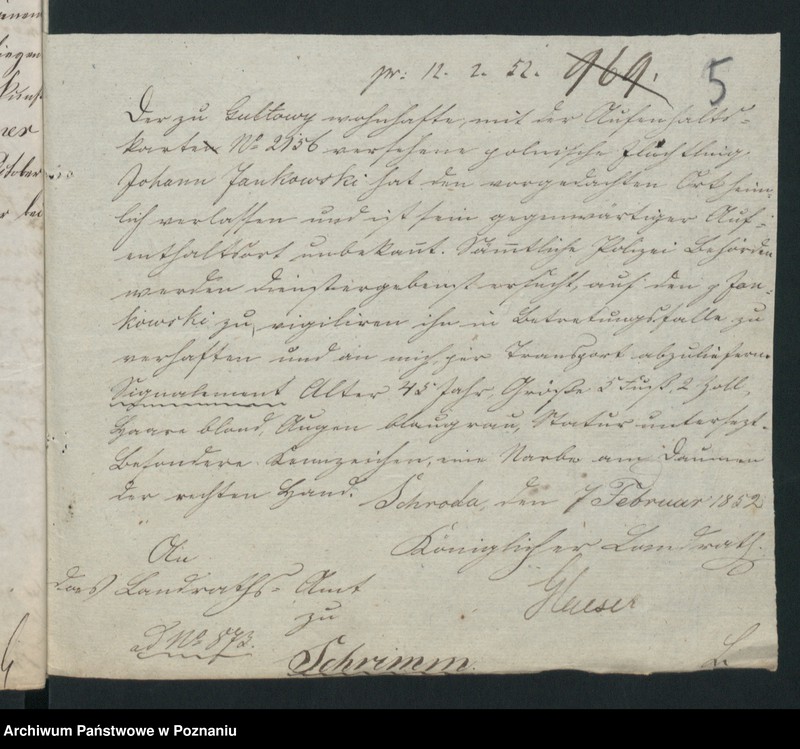 pr: 12. 2. 52. 969. 5
Der zu Gultowy wohnhafte, mit der Aufenthalts-
karten No 2156 versehene polnische Flüchtling
Johann Jankowski hat den vorgedachten Ort heim-
lich verlassen und ist sein gegenwärtiger Auf-
enthaltsort unbekannt. Sämmtliche Polizei Behörden
werden dienstergebenst ersucht, auf den p Jan-
kowski zu vigiliren ihn im Betretungsfalle zu
verhaften und an mich per Transport abzuliefern.
Signalement Alter 45 Jahr, Größe 5 Fuß, 2 Zoll,
Haare blond, Augen blaugrau, Statur untersezt.
Besondere Kennzeichen, eine Narbe am Daumen
der rechten Hand.
Schroda, den 7 Februar 1852
Königlicher Landrath.
An
das Landraths-Amt
zu
Schrimm.
ad No 873.
Glaeser
Archiwum Państwowe w Poznaniu